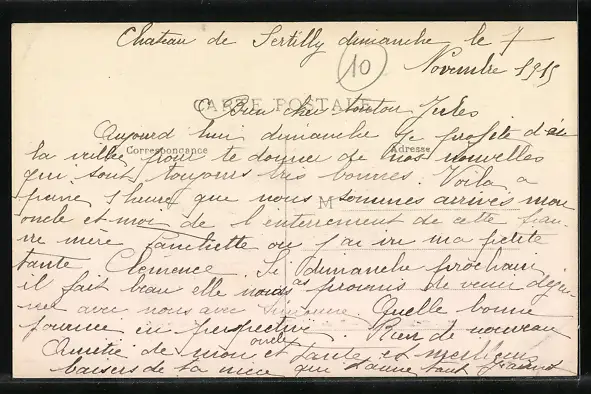 Chateau de Sertilly dimanche le 7
Novembre 1915
10
CARTE POSTALE
Bien cher tonton Jules
Aujourd hui dimanche je profite d'
Correspondance
Adresse
la veillée pour te donner de nos nouvelles
qui sont toujours très bonnes. Voila a
peine 1 heure que nous sommes arrivés mon
M
oncle et moi de l'enterrement de cette
re mère ou j'ai vu ma petite
tante Clémence. Si dimanche prochain
il fait beau elle nous as promis de venir déjeu-
ner avec nous avec Quelle bonne
journee en perspective. Rien de nouveau
Amitié de mon oncle et tante et meilleurs
baisers de ta nièce qui t'aime tant